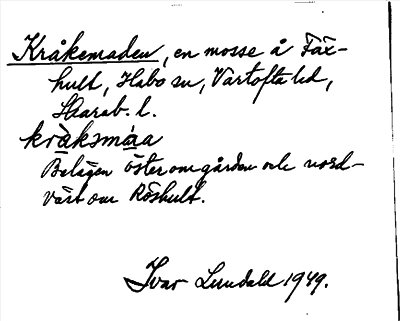 Kråkemaden, en mosse å Fäx-
hult, Habo sn, Vartofta hd,
Skarab. l.
kråksmåa
Belägen öster om gården och nord-
väst om Röshult.
Ivar Lundahl 1949.